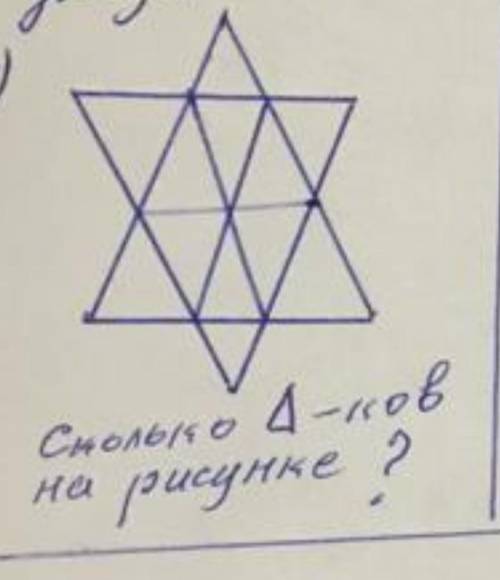 )
Сколько Δ-ков
на рисунке ?